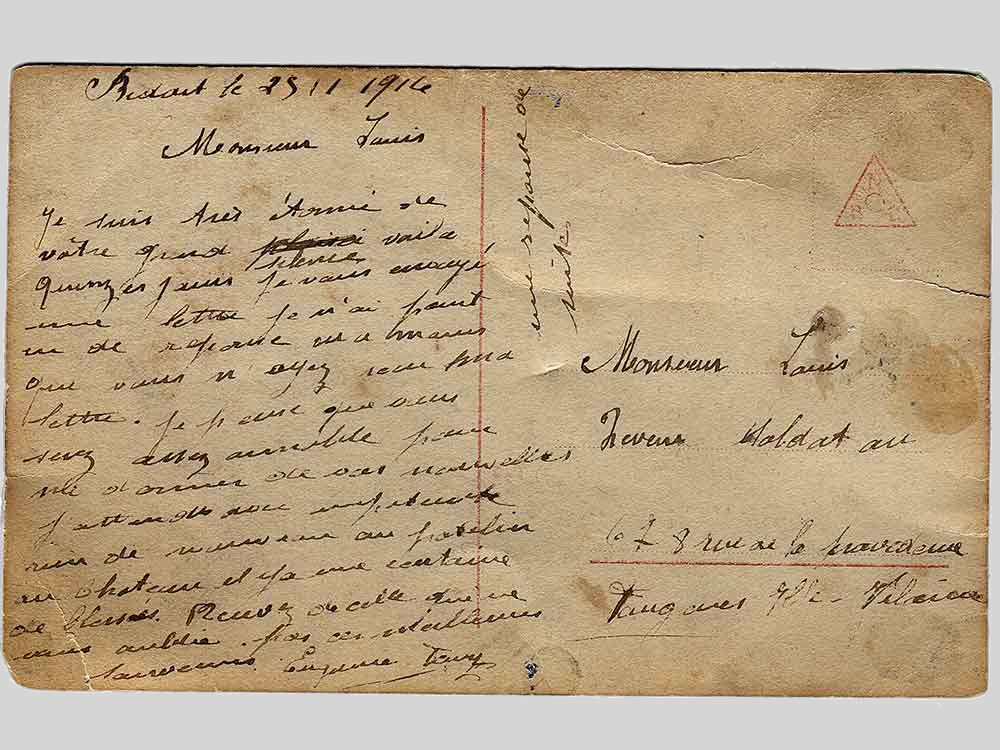 le 25 11 1914
Monsieur Louis
Je suis très étonné de
vôtre grand silence voila
quinzes jours je vous envoyé
une lettre je n'ai point
u de reponse
que vous n'ayez ma
lettre. Je pense que vous
serez assez aimable pour
me donner de vos nouvelles
J'attends avec
rien de nouveau au patelin
au Chateau il ya une centaine
de blessés. Recevez de celle que ne
vous oublie pas ces meilleurs
souvenirs Eugenie
une reponse de
suite
Monsieur Louis
soldat au
67 8 rue de la providence
Ille-Vilaine